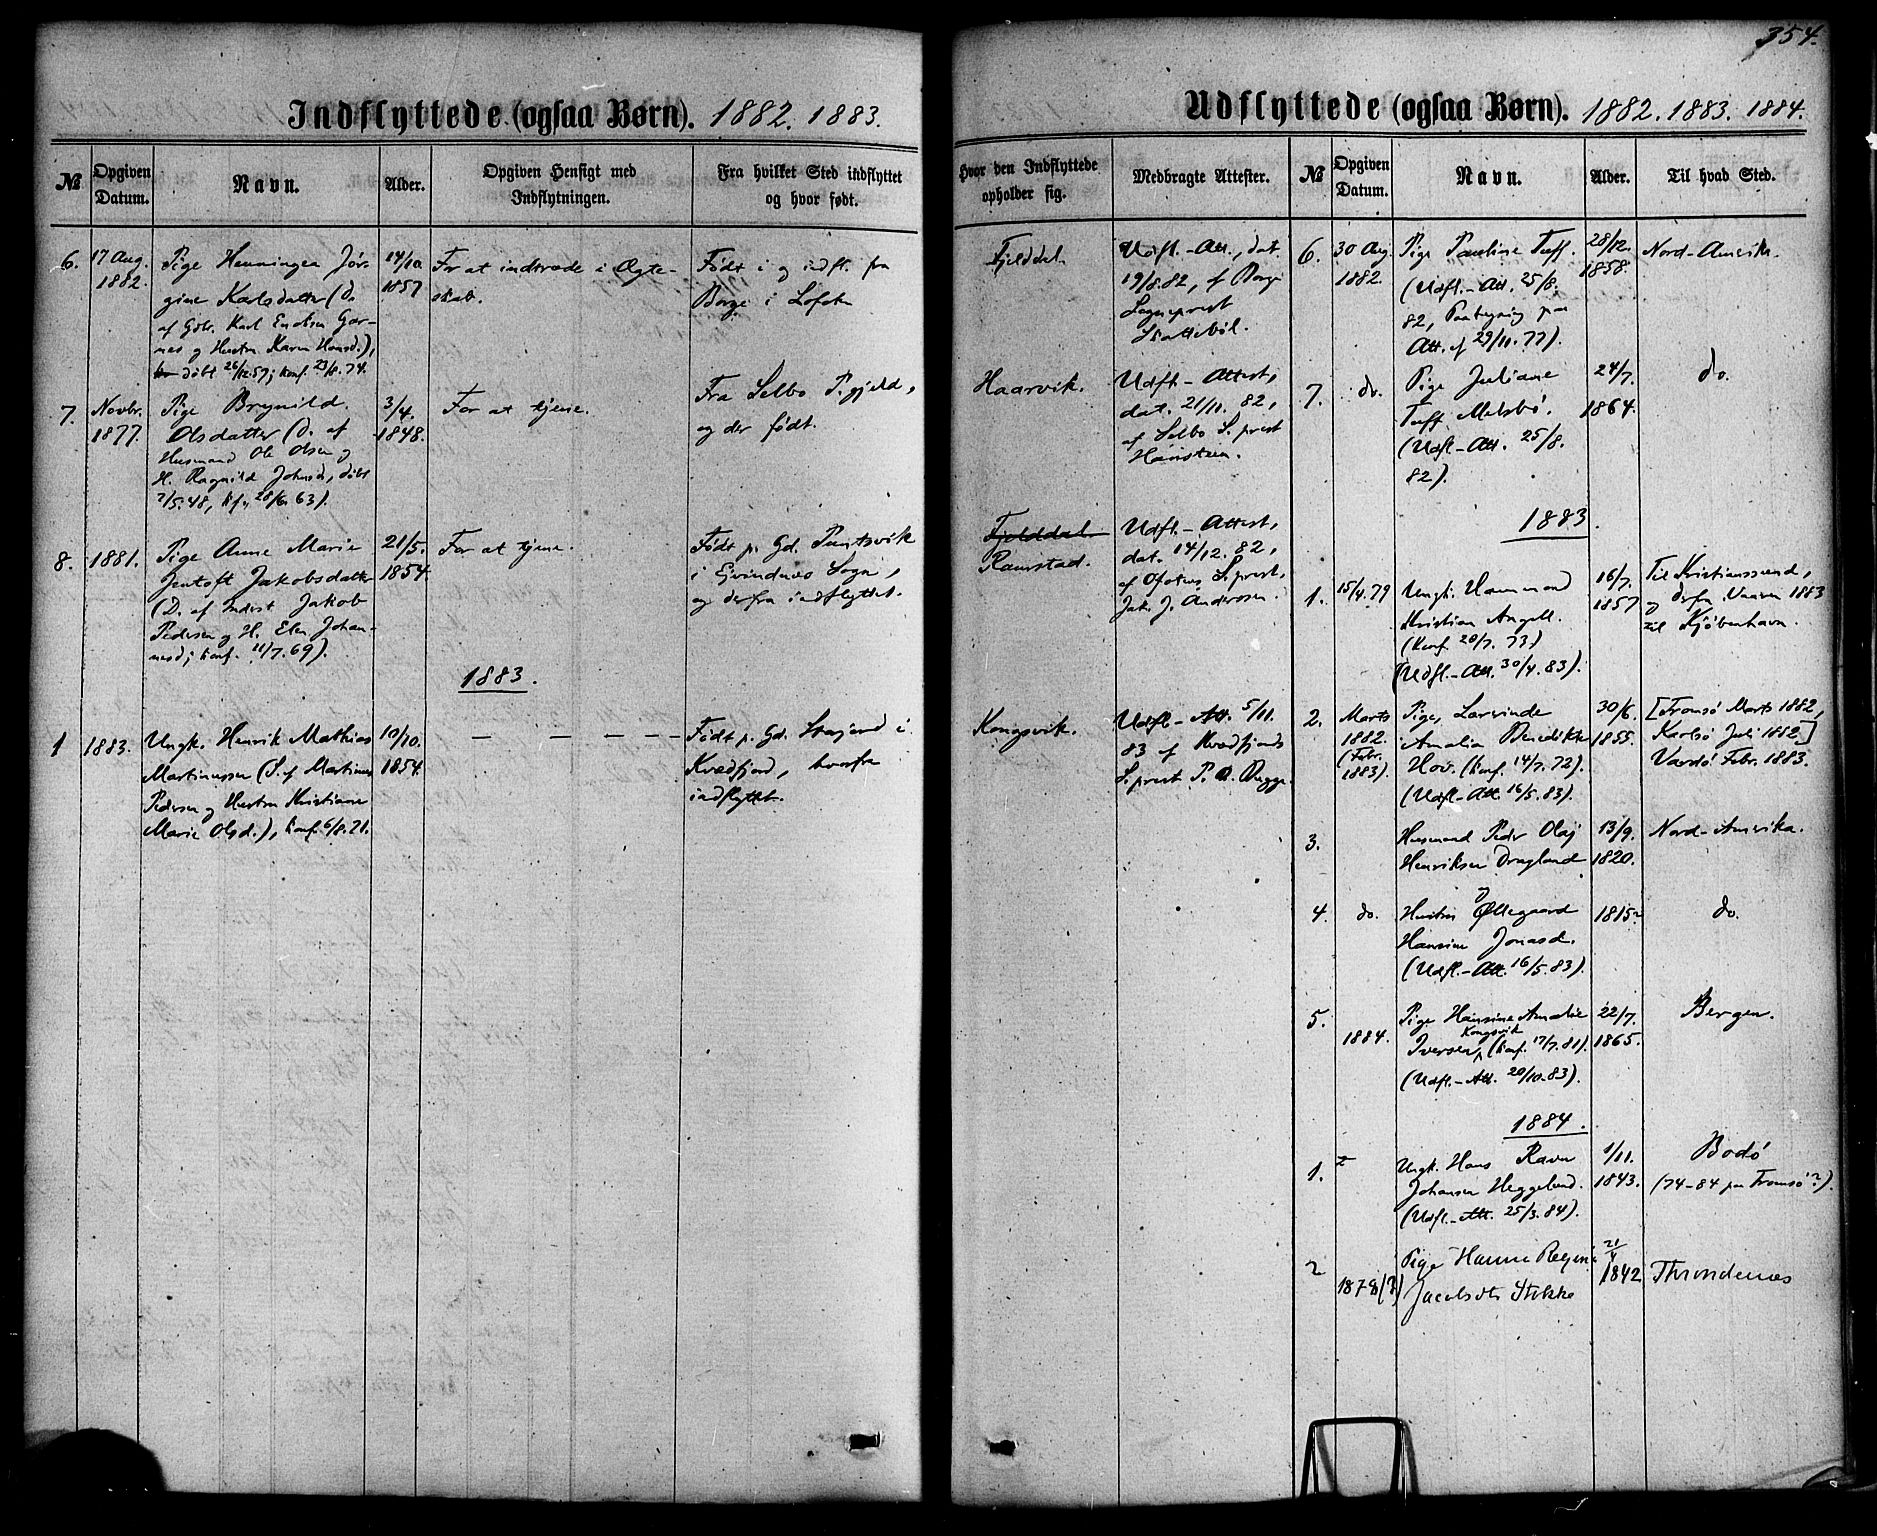 354.
Indflyttede (ogsaa Børn). 1882. 1883.
№
Opgiven
Datum.
Navn.
Alder.
Opgiven Hensigt med
Indflytningen.
Fra hvilket Sted indflyttet
og hvor født.
6.
17 Aug.
1882.
Pige Henningea Jør-
gine Karlsdatter (D.
af Gdbr. Karl Enoksen Gar-
nes og Hustru Karen Hansd.),
døbt 26/12.57; konf. 23/8.74.
14/10.
1857
For at indtræde i Ægte-
skab.
Født i og indfl. fra
Borge i Lofoten
7.
Novbr.
1877.
Pige Brynild.
Olsdatter (D. af
Husmand Ole Olsen og
H. Ragnild Johnsd., døbt
7/5.48, kf. 28/6.63).
3/4.
1848.
For at tjene.
Fra Selbo P.gjeld,
og der født.
8.
1881.
Pige Anne Marie
Jentoft Jakobsdatter
(D. af Inderst Jakob
Pedersen og H. Elen Johan-
nesd; konf. 11/7.69).
21/5.
1854.
For at tjene.
Født p. Gd.
i Evindnes Sogn,
og derfra indflyttet.
1883.
1
1883.
Ungk. Henrik Mathias
Martinussen (S. af Martinus
Pedersen og Hustru Kristiane
Marie Olsd.), konf. 6/8.71.
10/10.
1854.
— — — — —
Født p. Gd. i
Kvædfjord, hvorfra
indflyttet.
Udflyttede (ogsaa Børn). 1882. 1883. 1884.
Hvor den Indflyttede
opholder sig.
Medbragte Attester.
№
Opgiven
Datum.
Navn.
Alder.
Til hvad Sted.
Fjelddal
Udfl.-Att., dat.
19/8.82, af Borge
Sogneprest
Skattebøl.
Haarvik.
Udfl.-Attest,
dat. 21/11. 82,
af Selbo S.prest
Hanstein.
Fjelddal
Ramstad.
Udfl.-Attest,
dat. 14/12. 82,
af Ofotens S.prest,
Jak. J. Andersen.
Kongsvik.
Udfl.-Att. 5/11.
83 af Kvædfjords
S.prest P. A. Bugge.
6.
30 Aug.
1882.
Pige Pauline Tuff.
(Udfl.-Att. 25/8.
82, Paategning paa
Att. af 29/11.77).
28/12.
1858.
Nord-Amerik.
7.
do.
Pige Juliane
Tuff Melsbø.
(Udfl.-Att. 25/8.
82).
24/7.
1864.
do.
1883.
1.
15/4.79
Ungk. Hammond
Kristian Angell.
(konf. 20/7. 73)
(Udfl.-Att. 30/4.83).
16/7.
1857
Til Kristianssund,
og derfra Vaaren 1883
til Kjøbenhavn.
2.
Marts
1882.
(Febr.
1883).
Pige, Lovinde
Amalia Benedikte
Hov. (konf. 14/7.72).
(Udfl.-Att. 16/5.83).
30/6.
1855.
[Tromsø Marts 1882,
Karlsø Juli 1882.]
Vardø Febr. 1883.
3.
Husmand Peder Olaj
Henriksen Dragland
13/9.
1820.
Nord-Amerika.
4.
do.
og
Hustru Øllegaard
Hansine Jonasd.
(Udfl.-Att. 16/5.83).
1815
do.
5.
1884.
Pige Hansine Amalie
Kongsvik
Iversen, (konf. 17/7.81).
(Udfl.-Att. 20/10.83).
22/7.
1865.
Bergen.
1884.
1.
Ungk. Hans Ravn
Johansen Heggelund.
(Udfl.-Att. 25/3.84).
1/11.
1843.
Bodø
(74-84 paa Tromsø?).
2
1878(?)
Pige Hanna Regine
Jacobsdtr Stokke
21/4
1842
Throndenæs